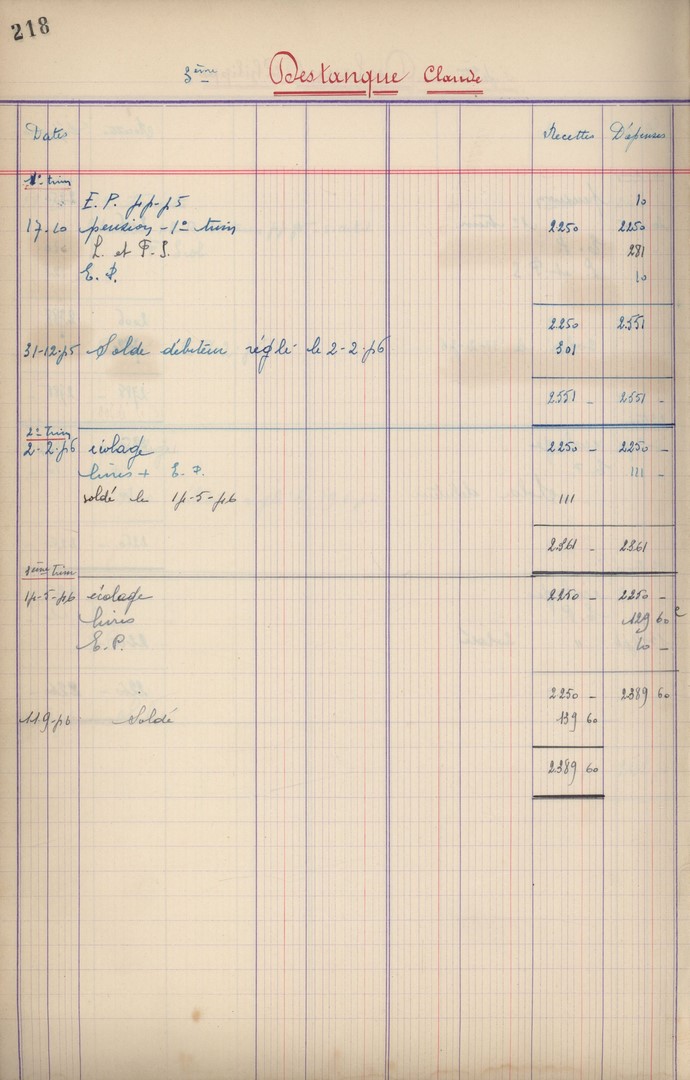 218
3ème Destanque Claude
Dates Recettes Dépenses
1º trim
E. P. 44-45 10
17.10 pension - 1º trim 2250 2250
L. et F. S. 281
E. P. 10
2250 2551
31-12-45 Solde débiteur réglé le 2-2-46 301
2551 - 2551 -
2º trim
2-2-46 écolage 2250 - 2250 -
livres + E. P. 111 -
soldé le 14-5-46 111
2361 - 2361
3ème trim
14-5-46 écolage 2250 - 2250 -
livres 129 60
E. P. 10 -
2250 - 2389 60
11 9-46 Soldé 139 60
2389 60